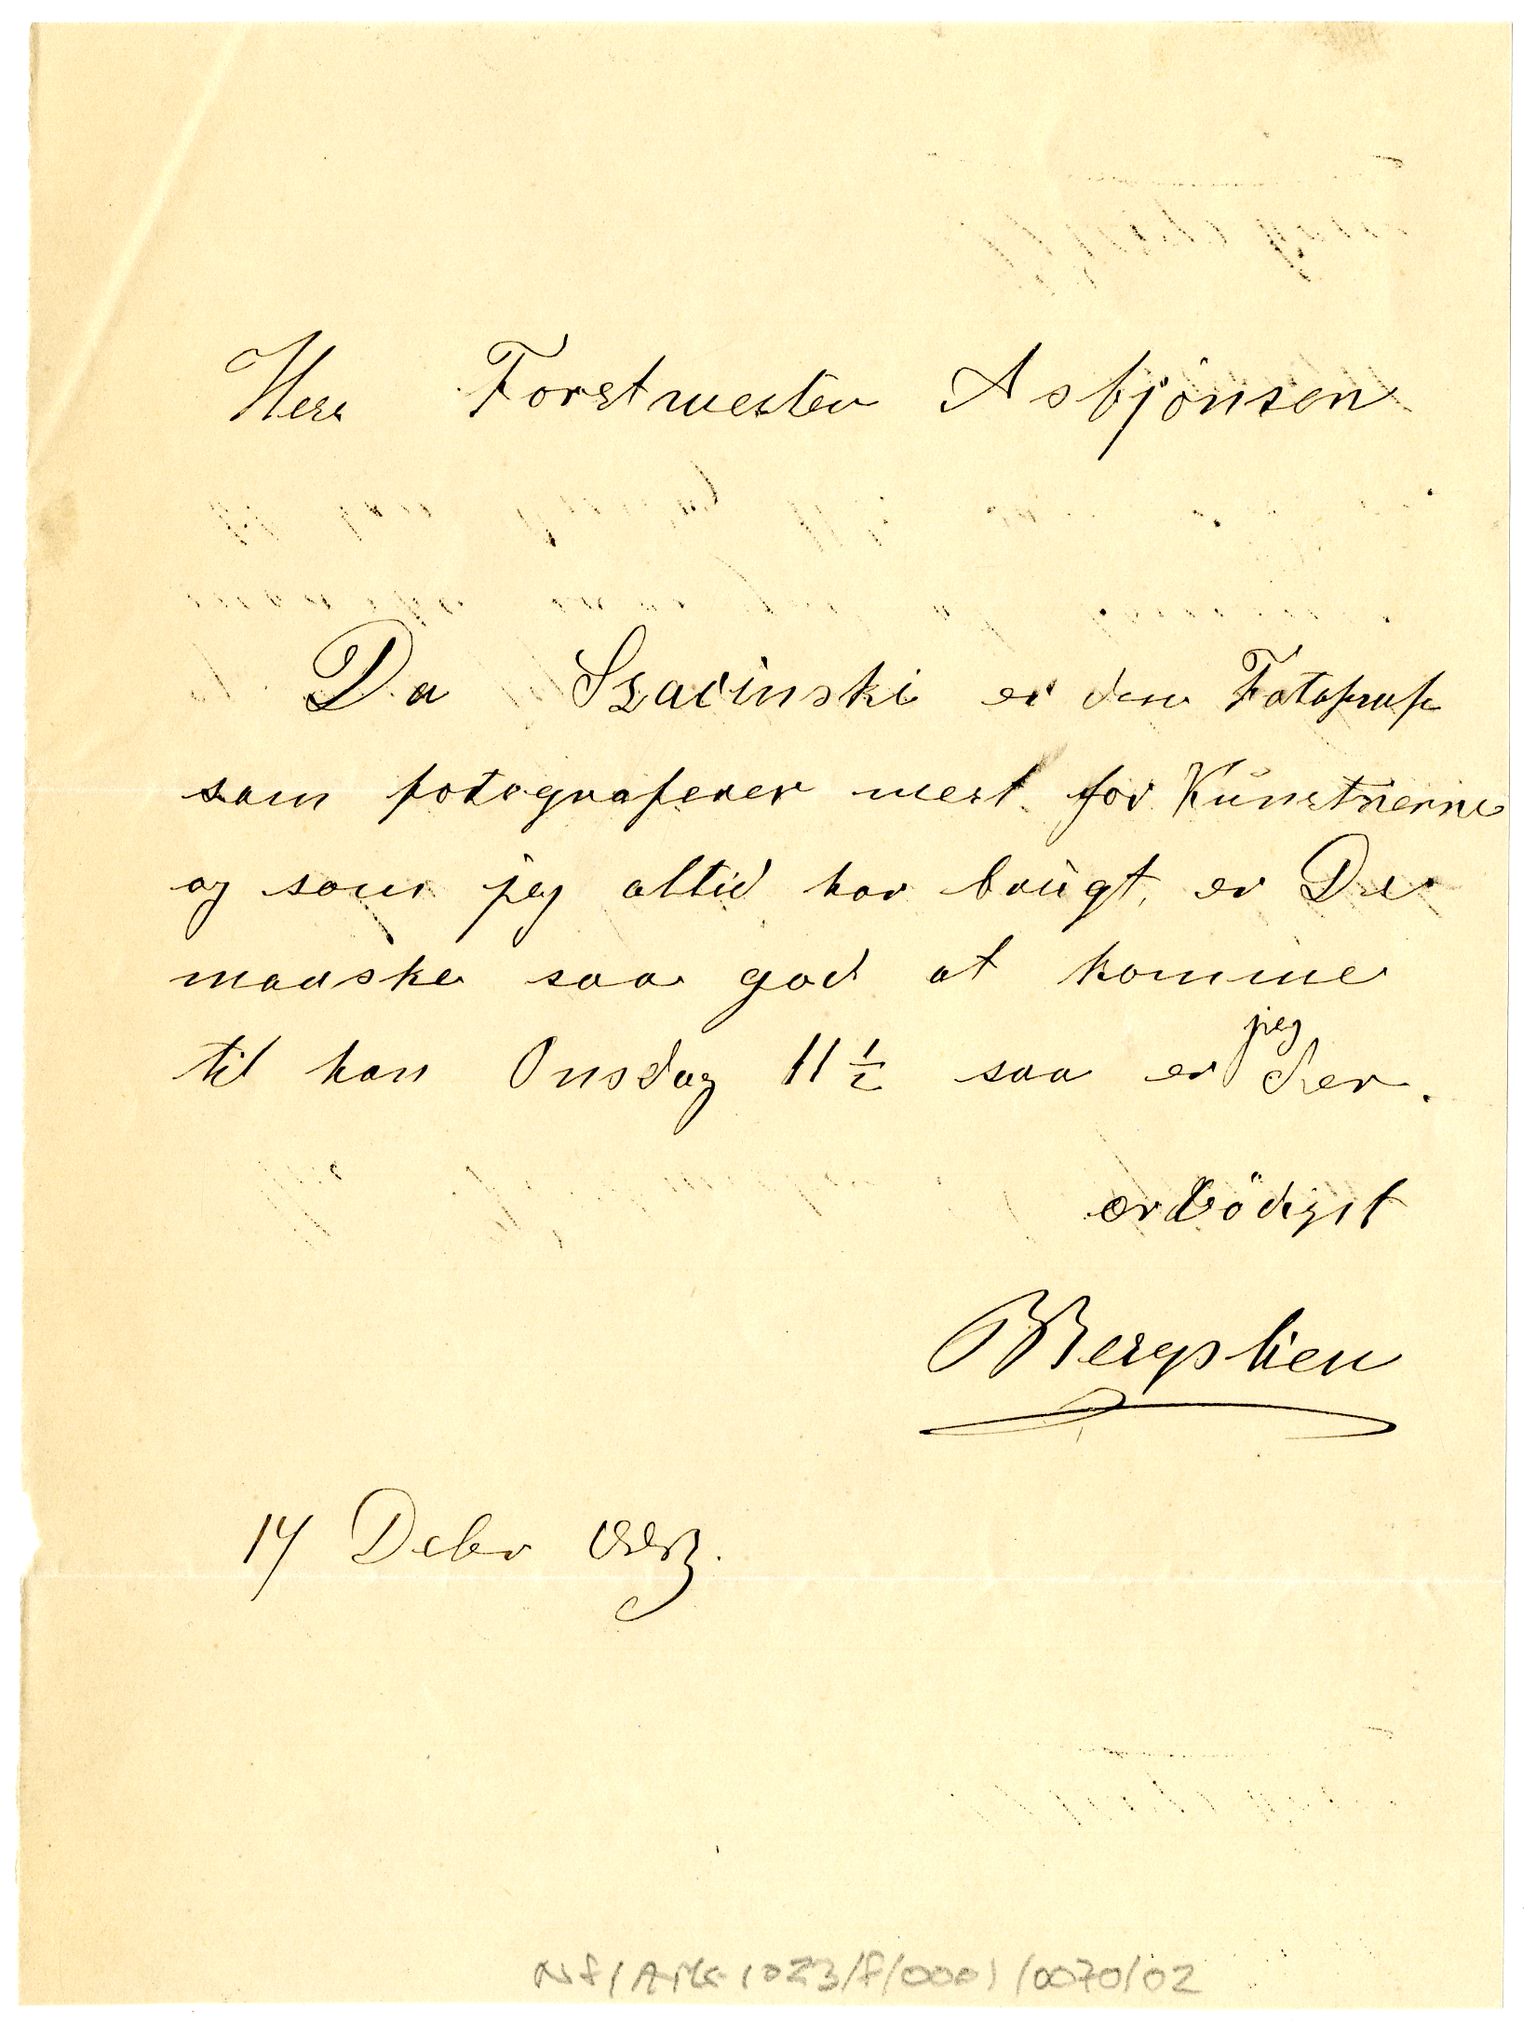 Herr Forstmester Asbjönsen
Da Szacinski er den Fotograf
som fotograferer mest for Kunstnerne
og som jeg altid har brugt, er De
maaske saa god at komme
til han Onsdag 11 1/2 saa er jeg der.
ærbödigst
Bergslien
14 Debr
NF/Ark 1023/F/0001/0070/02